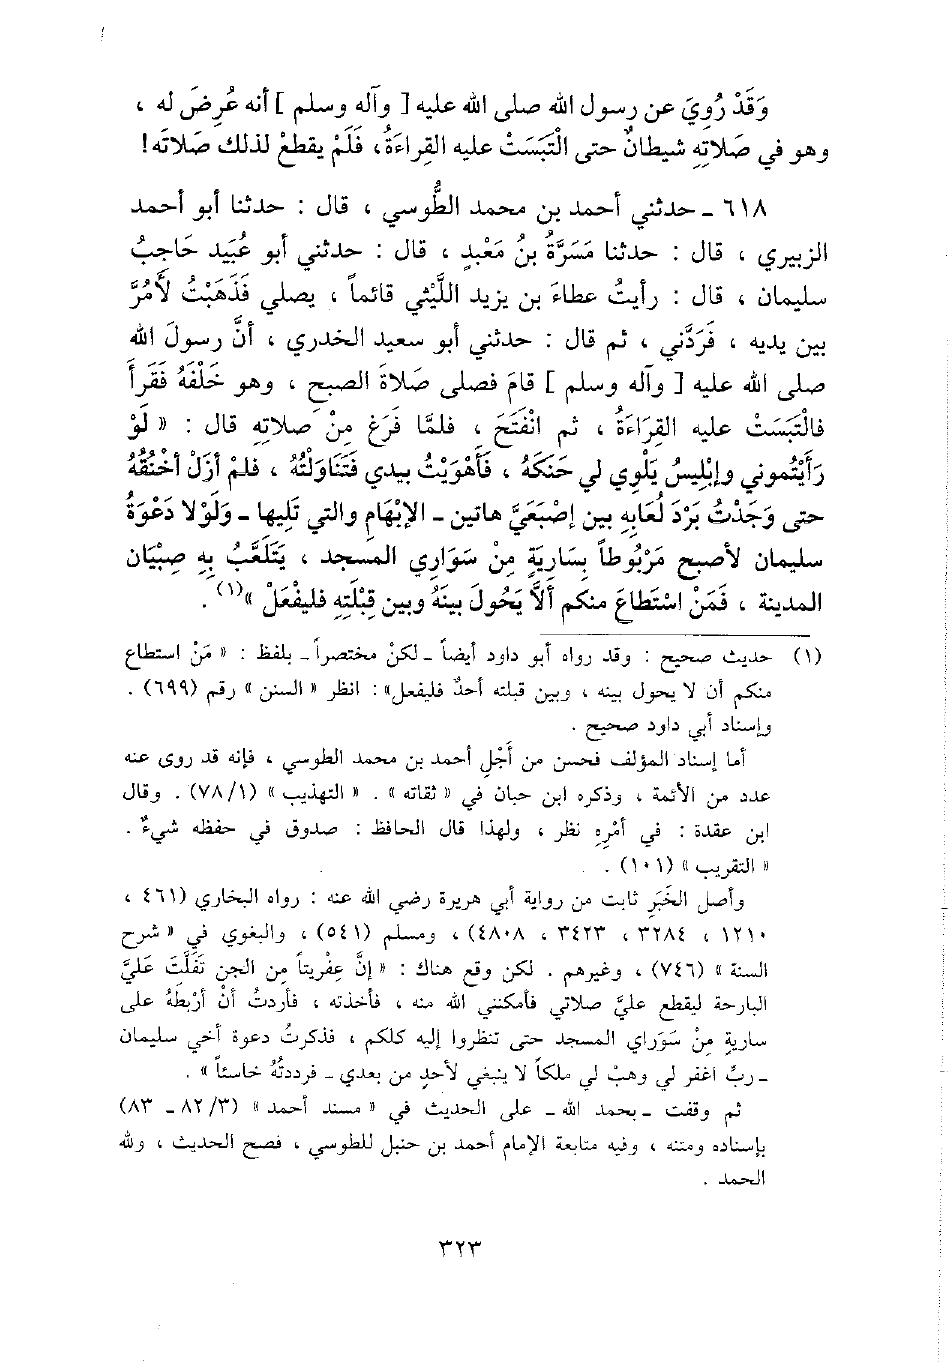 وَقَدْ رُوِيَ عن رسول الله صلى الله عليه [ وآله وسلم ] أنه عُرِضَ له ،
وهو في صَلاتِهِ شيطانٌ حتى الْتَبَسَتْ عليه القِراءَةُ، فَلَمْ يقطعْ لذلك صَلاتَه!
٦١٨ ـ حدثني أحمد بن محمد الطُّوسي ، قال : حدثنا أبو أحمد
الزبيري ، قال : حدثنا مَسَرَّةُ بنُ مَعْبدٍ ، قال : حدثني أبو عُبَيد حَاجِبُ
سليمان ، قال : رأيتُ عطاءَ بن يزيد اللَّيْثي قائماً ، يصلي فَذَهَبْتُ لأَمُرَّ
بين يديه ، فَرَدَّني ، ثم قال : حدثني أبو سعيد الخدري ، أنَّ رسولَ الله
صلى الله عليه [ وآله وسلم ] قامَ فصلى صَلاةَ الصبح ، وهو خَلْفَهُ فَقَرأَ
فالْتَبَسَتْ عليه القِرَاءَةُ ، ثم انْفَتَحَ ، فلمَّا فَرَغَ مِنْ صَلاتِهِ قال : « لَوْ
رَأَيْتُموني وإبْليسُ يَلْوِي لي حَنَكَهُ ، فَأَهْوَيْتُ بيدي فَتَنَاوَلْتُهُ ، فلمْ أزَلْ أخْنُقُهُ
حتى وَجَدْتُ بَرْدَ لُعَابِهِ بين إصْبَعَيَّ هاتين ـ الإبْهَامِ والتي تَلِيها ـ وَلَوْلا دَعْوَةُ
سليمان لأصبح مَرْبُوطاً بِسَارِيَةٍ مِنْ سَوَارِي المسجد ، يَتَلَعَّبُ بِهِ صِبْيَان
المدينة ، فَمَنْ اسْتَطَاعَ منكم ألاَّ يَحُولَ بينَهُ وبين قِبْلَتِهِ فليفْعَلْ »(١) .
(١) حديث صحيح : وقد رواه أبو داود أيضاً ـ لكنْ مختصراً ـ بلفظ : « مَنْ استطاع
منكم أن لا يحول بينه ، وبين قبلته أحدٌ فليفعل» : انظر « السنن » رقم (٦٩٩) .
وإسناد أبي داود صحيح .
أما إسناد المؤلف فحسن من أَجْلِ أحمد بن محمد الطوسي ، فإنه قد روى عنه
عدد من الأئمة ، وذكره ابن حبان في « ثقاته » . « التهذيب » (٧٨/١) . وقال
ابن عقدة : في أمْرِهِ نظر ، ولهذا قال الحافظ : صدوق في حفظه شيءٌ .
« التقريب » (١٠١) .
وأصل الخَبَرِ ثابت من رواية أبي هريرة رضي الله عنه : رواه البخاري (٤٦١ ،
١٢١٠ ، ٣٢٨٤ ، ٣٤٢٣ ، ٤٨٠٨)، ومسلم (٥٤١) ، والبغوي في « شرح
السنة » (٧٤٦) ، وغيرهم . لكن وقع هناك : « إنَّ عِفْريتاً مِن الجن تَفَلَّتَ عَلَيَّ
البارحة ليقطع عليَّ صلاتي فأمكنني الله منه ، فأخذته ، فأردتُ أنْ أرْبِطَهُ على
ساريةٍ مِنْ سَوَراي المسجد حتى تنظروا إليه كلكم ، فذكرتُ دعوة أخي سليمان
ـ ربِّ اغفر لي وهبْ لي ملكاً لا ينبغي لأحدٍ من بعدي ـ فرددتُهُ خاسئاً » .
ثم وقفت ـ بحمد الله ـ على الحديث في « مسند أحمد » (٨٢/٣ ـ ٨٣)
بإسناده ومتنه ، وفيه متابعة الإمام أحمد بن حنبل للطوسي ، فصح الحديث ، ولله
الحمد .
٣٢٣